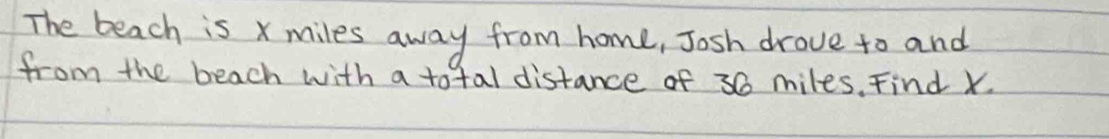 The beach is x miles away from home, Josh drove to and
from the beach with a total distance of 36 miles. Find X.